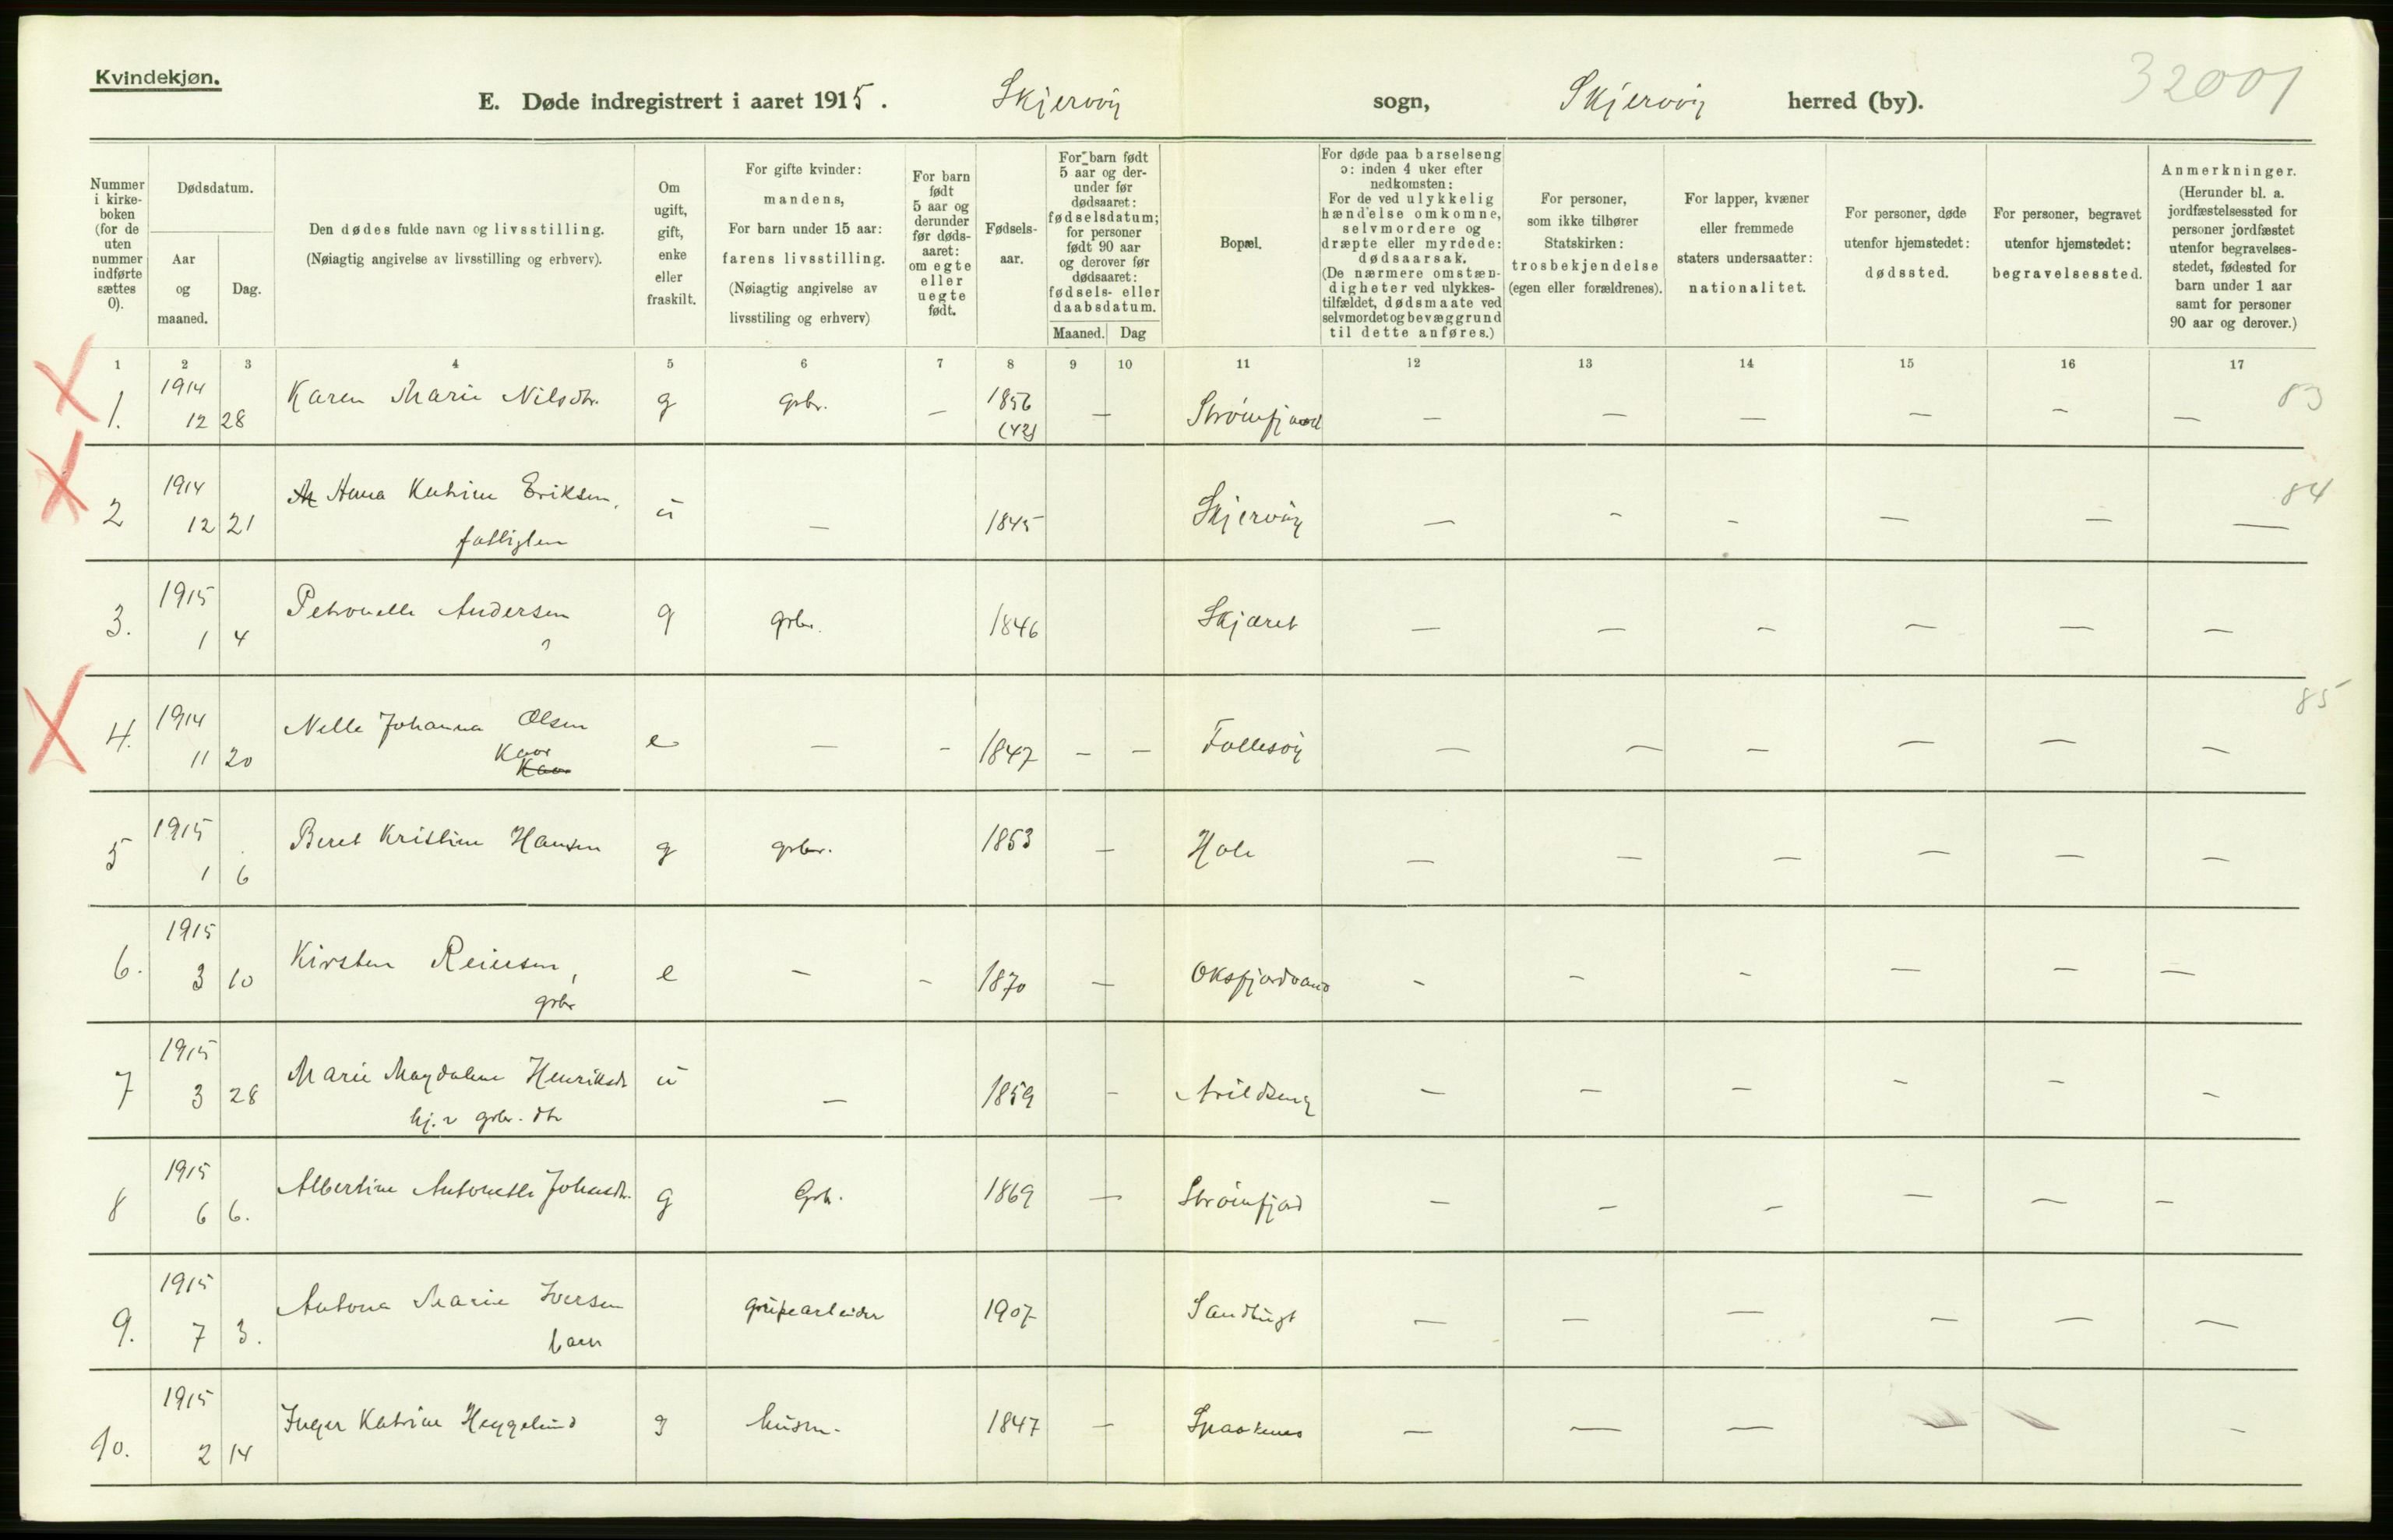 Kvindekjøn.
E. Døde indregistrert i aaret 1915. Skjervöy sogn, Skjervöy herred (by).
32001
Nummer i kirkeboken (for de uten nummer indførte sættes 0).
Dødsdatum.
Aar og maaned.
Dag.
Den dødes fulde navn og livsstilling.
(Nøiagtig angivelse av livsstilling og erhverv).
Om ugift, gift, enke eller fraskilt.
For gifte kvinder: mandens,
For barn under 15 aar: farens livsstilling.
(Nøiagtig angivelse av livsstiling og erhverv)
For barn født 5 aar og derunder før dødsaaret: om egte eller uegte født.
Fødselsaar.
For barn født 5 aar og derunder før dødsaaret: fødselsdatum; for personer født 90 aar og derover før dødsaaret: fødsels- eller daabsdatum.
Maaned. Dag
Bopæl.
For døde paa barselseng ɔ: inden 4 uker efter nedkomsten:
For de ved ulykkelig hændelse omkomne, selvmordere og dræpte eller myrdede: dødsaarsak.
(De nærmere omstændigheter ved ulykkestilfældet, dødsmaate ved selvmordet og bevæggrund til dette anføres.)
For personer, som ikke tilhører Statskirken: trosbekjendelse (egen eller forældrenes).
For lapper, kvæner eller fremmede staters undersaatter: nationalitet.
For personer, døde utenfor hjemstedet: dødssted.
For personer, begravet utenfor hjemstedet: begravelsessted.
Anmerkninger.
(Herunder bl. a. jordfæstelsessted for personer jordfæstet utenfor begravelsesstedet, fødested for barn under 1 aar samt for personer 90 aar og derover.)
1 2 3 4 5 6 7 8 9 10 11 12 13 14 15 16 17
1. 1914 12 28 Karen Marie Nilsdtr. g grbr. — 1856 (42) — Strömfjord — — — — — — 83
2 1914 12 21 Anna Katrine Eriksen, fattiglem u — 1845 Skjervöy — — — — — — 84
3. 1915 1 4 Petronelle Andersen g grbr. 1846 Skjæret — — — — — —
4. 1914 11 20 Nelle Johanna Olsen Kaar e — — 1847 — — Follesöy — — — — — — 85
5 1915 1 6 Beret Kristine Hansen g grbr. 1853 — Hole — — — — — —
6. 1915 3 10 Kirsten Reiersen, grbr e — — 1870 — Oksfjordvand — — — — — —
7 1915 3 28 Marie Magdalene Henriksdt grbr. dtr u — 1859 — Arildseng — — — — — —
8 1915 6 6. Albertine Antonette Johansdtr. g Grb. 1869 — Strömfjord — — — — — —
9. 1915 7 3. Antona Marie Iversen barn grubearbeider 1907 Sandbugt — — — — — —
10. 1915 2 14 Inger Katrine Heggelund g husm. 1847 — Spaakenes — — — —